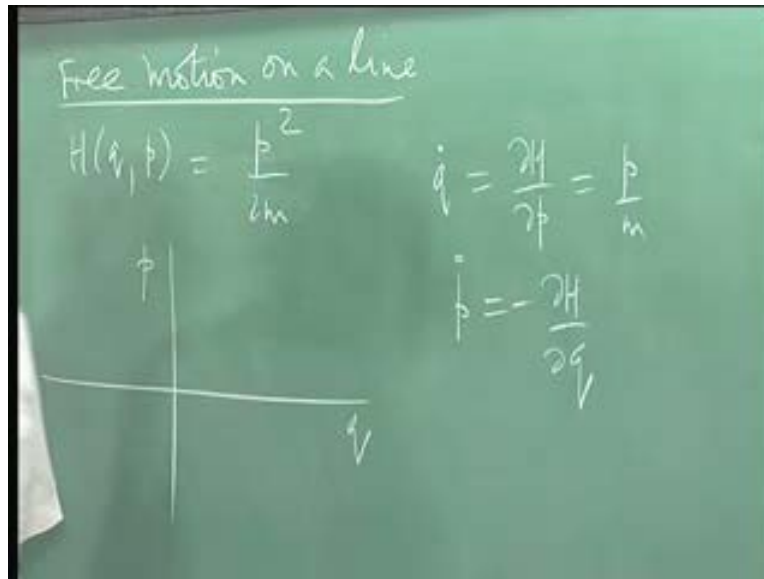 Free motion on a line
H(q, p) = p² / 2m
q̇ = ∂H/∂p = p/m
ṗ = -∂H/∂q
p
q